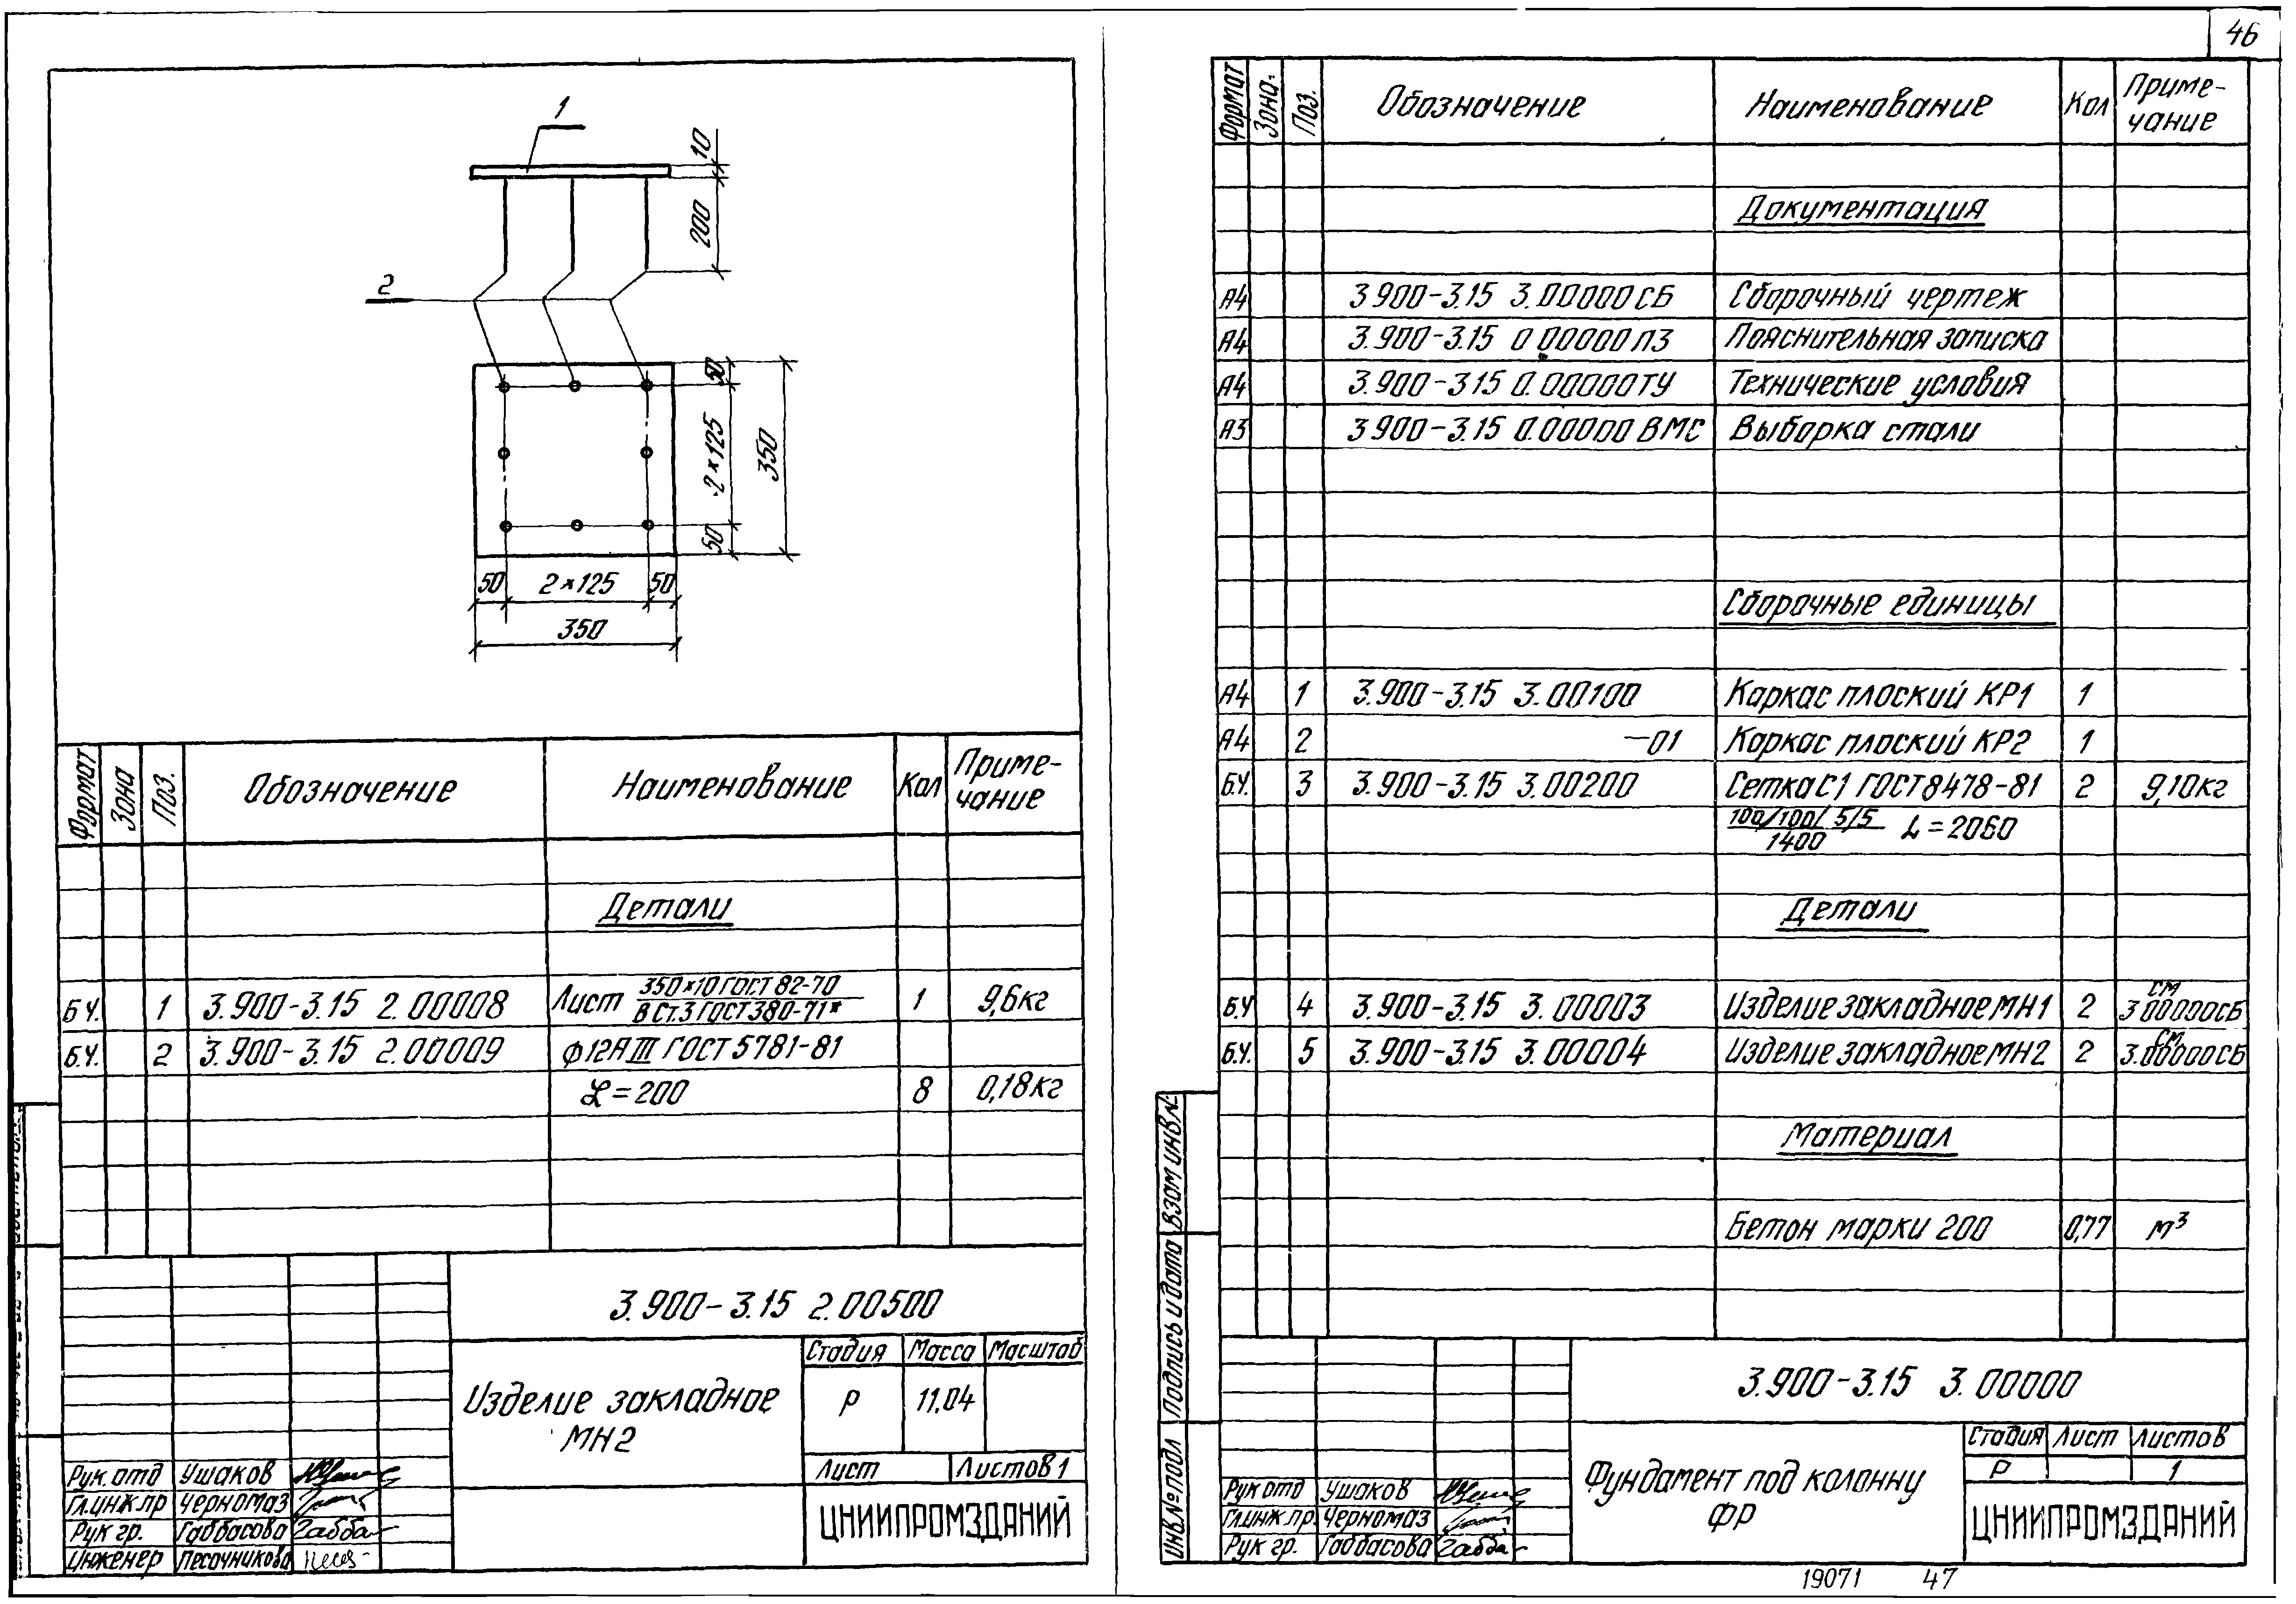 46
1
10
200
2
50
2×125
50
350
50 2×125 50
350
Формат Зона Поз. Обозначение Наименование Кол Приме-
чание
Детали
Б.Ч. 1 3.900-3.15 2.00008 Лист 350×10 ГОСТ 82-70 1 9,6кг
В Ст.3 ГОСТ 380-71*
Б.Ч. 2 3.900-3.15 2.00009 ф12АIII ГОСТ 5781-81
ℒ=200 8 0,18кг
3.900-3.15 2.00500
Изделие закладное
МН2
Стадия Масса Масштаб
Р 11,04
Лист Листов 1
ЦНИИПРОМЗДАНИЙ
Рук.отд Ушаков
Гл.инж.пр Черномаз
Рук гр. Габбасова
Инженер Песочникова
Формат Зона. Поз. Обозначение Наименование Кол Приме-
чание
Документация
А4 3.900-3.15 3.00000СБ Сборочный чертеж
А4 3.900-3.15 0.00000ПЗ Пояснительная записка
А4 3.900-3.15 0.00000ТУ Технические условия
А3 3.900-3.15 0.00000 ВМС Выборка стали
Сборочные единицы
А4 1 3.900-3.15 3.00100 Каркас плоский КР1 1
А4 2 -01 Каркас плоский КР2 1
Б.Ч. 3 3.900-3.15 3.00200 Сетка С1 ГОСТ 8478-81 2 9,10кг
100/100/ 5/5 ℒ=2060
1400
Детали
Б.Ч 4 3.900-3.15 3.00003 Изделие закладное МН1 2 см
3.00000СБ
Б.Ч. 5 3.900-3.15 3.00004 Изделие закладное МН2 2 см
3.00000СБ
Материал
Бетон марки 200 0,77 м³
Взам инв.№
Подпись и дата
Инв.№подл
3.900-3.15 3.00000
Фундамент под колонну
ФР
Стадия Лист Листов
Р 1
ЦНИИПРОМЗДАНИЙ
Рук отд Ушаков
Гл.инж.пр. Черномаз
Рук гр. Габбасова
19071 47